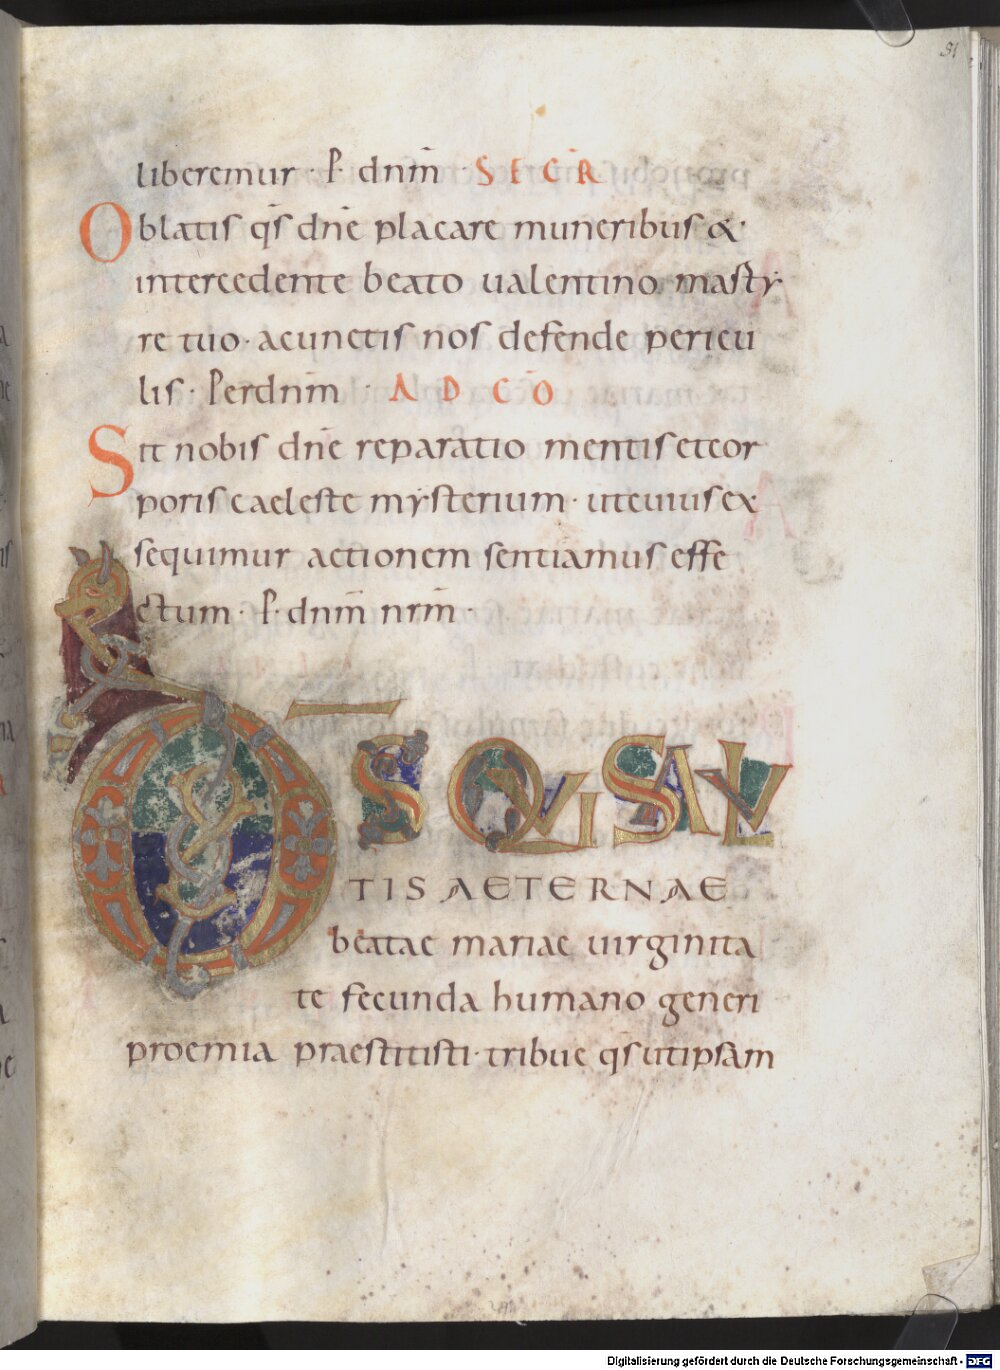 51
liberemur · P · dnm̄ · SECR̄
Oblatis qs̄ dn̄e placare muneribus &·
intercedente beato ualentino marty
re tuo · acunctis nos defende pericu
lis · Perdnm̄ · AD CŌ
Sit nobis dn̄e reparatio mentis etcor
poris caeleste mysterium · utcuius ex
sequimur actionem sentiamus effe
ctum · P · dnm̄ nrm̄ ·
D̄S QUI SALU
TIS AETERNAE
beatae mariae uirginita
te fecunda humano generi
proemia praestitisti · tribue qs̄ utipsam
Digitalisierung gefördert durch die Deutsche Forschungsgemeinschaft - DFG